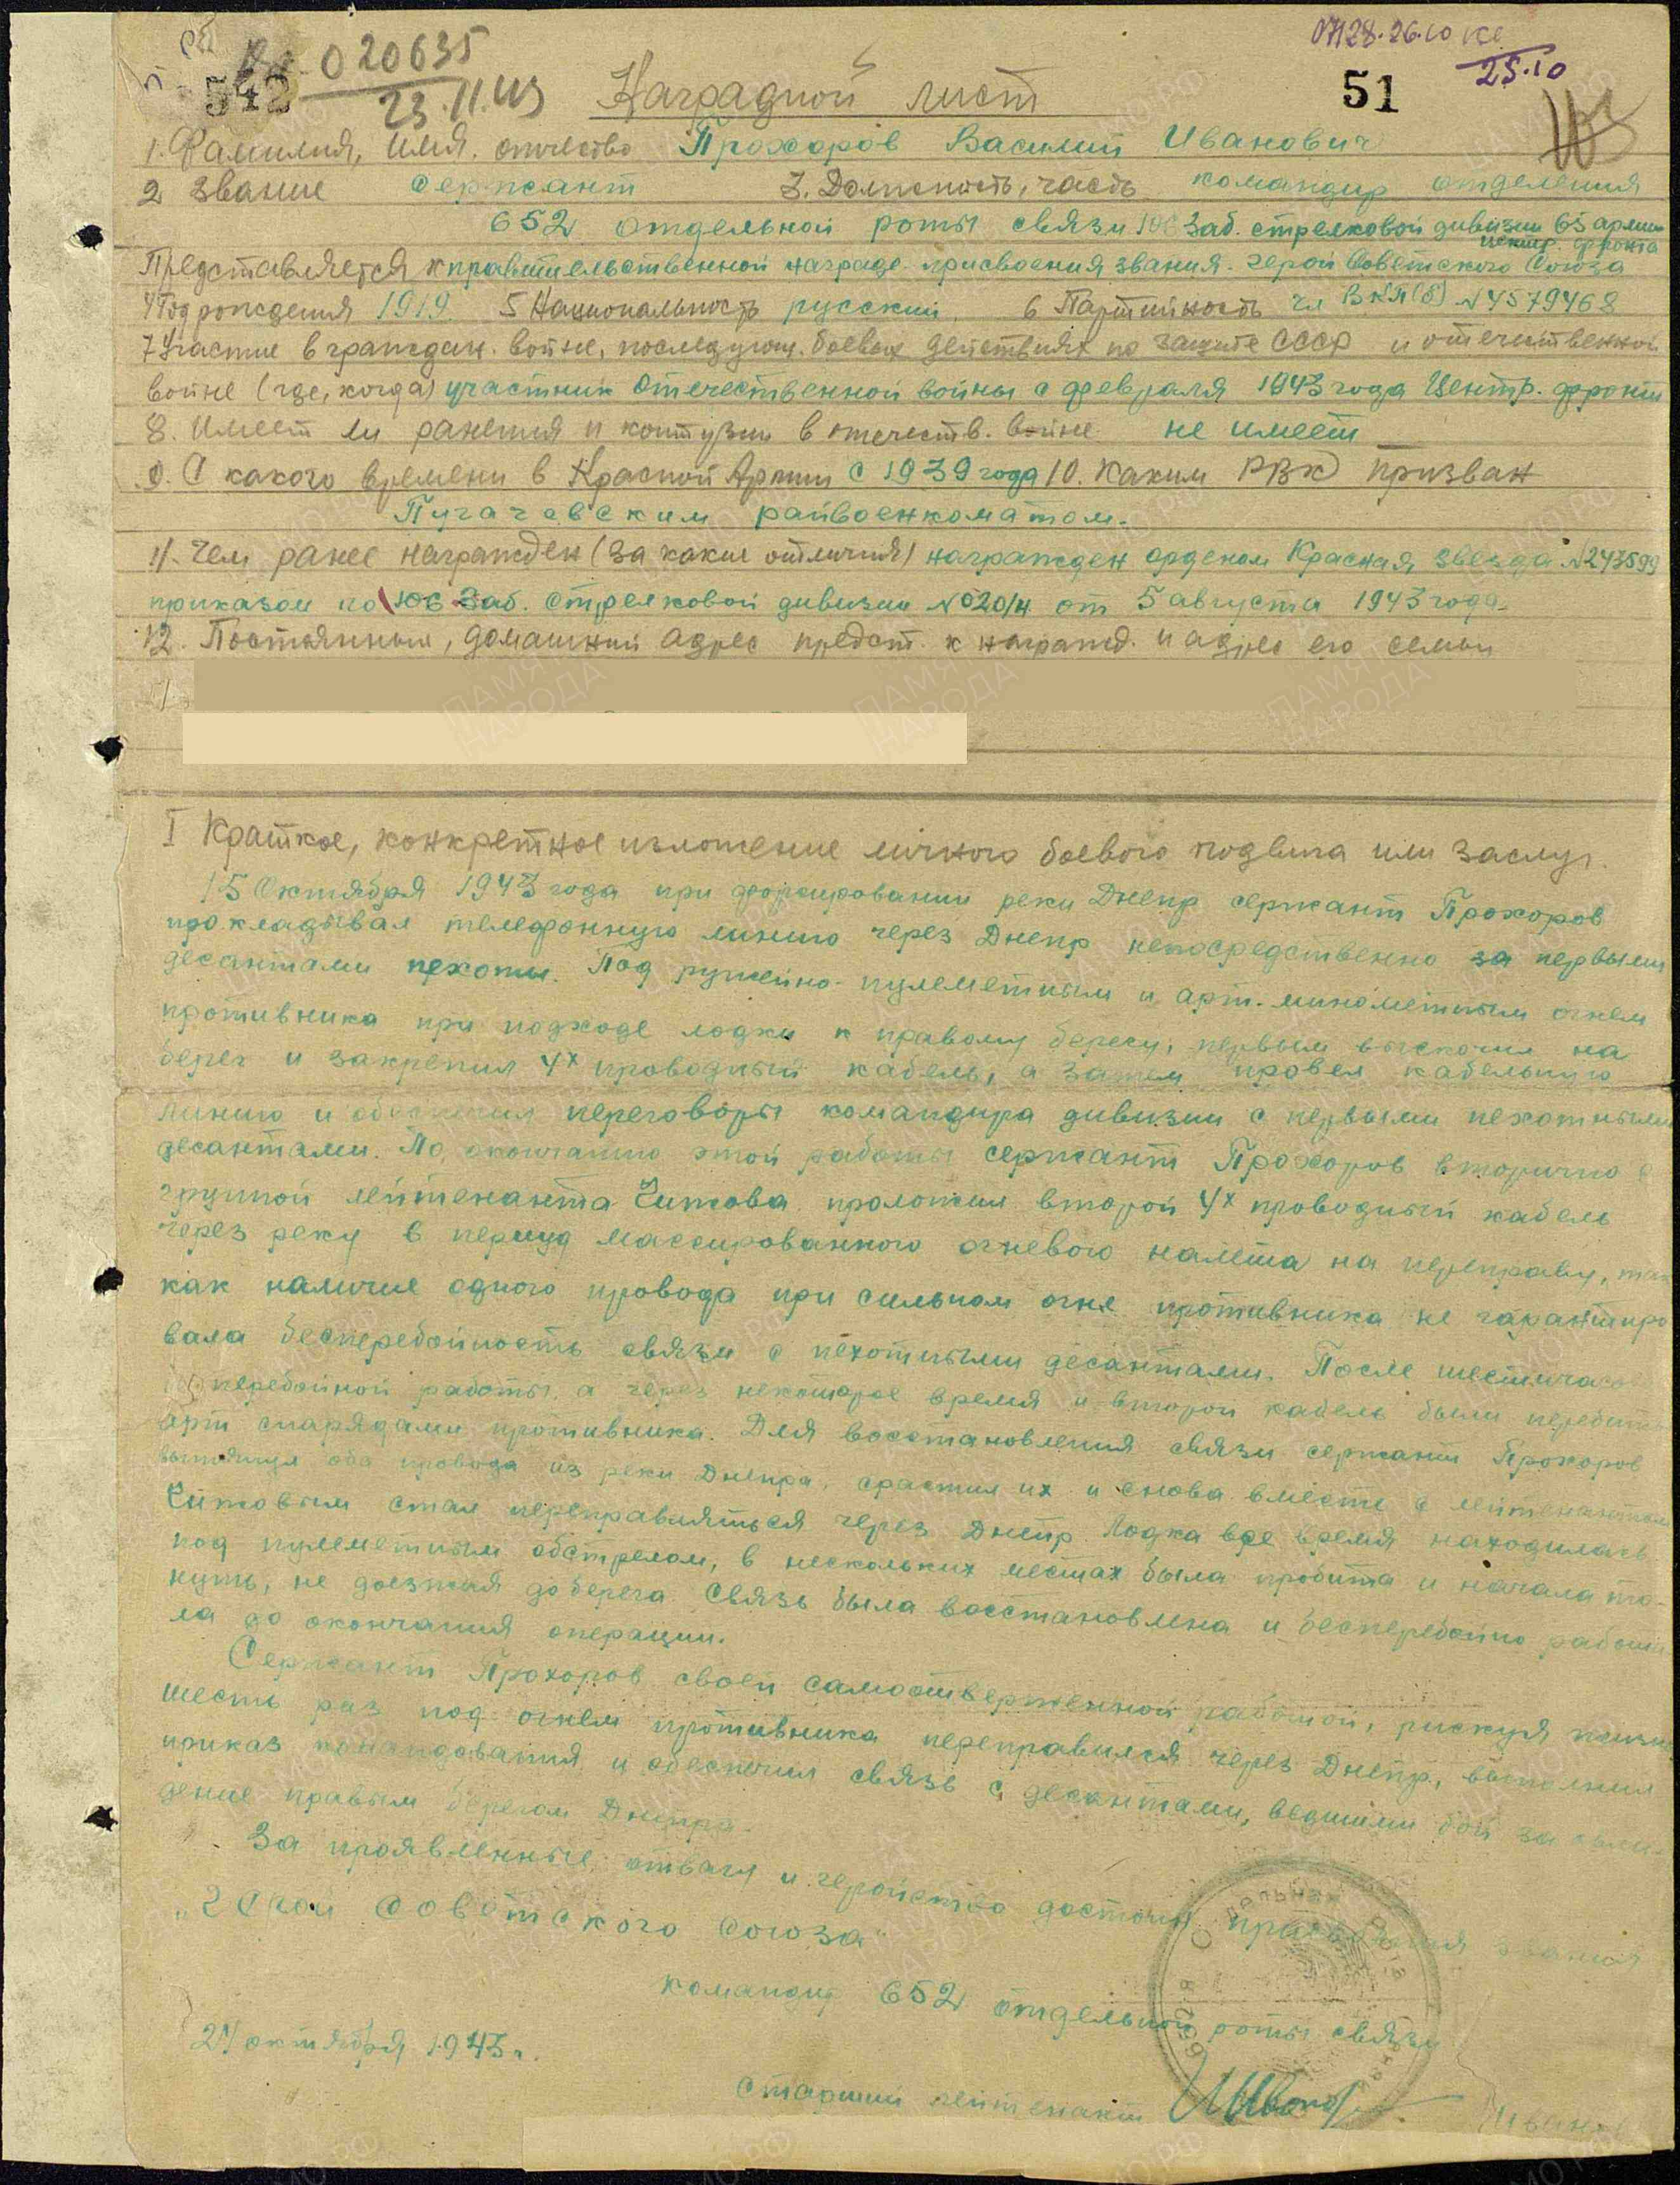 020635
542
23.11.43
0728.26.10
25.10
51
Наградной лист
1. Фамилия, имя, отчество Прохоров Василий Иванович
2 Звание сержант 3. Должность, часть командир отделения
652 отдельной роты связи 106 Заб. стрелковой дивизии 65 армии
центр. фронта
Представляется к правительственной награде присвоения звания Герой Советского Союза
4 Год рождения 1919. 5 Национальность русский, 6 Партийность чл ВКП(б) №4579468
7 Участие в граждан. войне, последующ. боевых действиях по защите СССР и отечественной
войне (где, когда) участник Отечественной войны с февраля 1943 года Центр. фронт
8. Имеет ли ранения и контузии в отечеств. войне не имеет
9. С какого времени в Красной Армии с 1939 года 10. Каким РВК призван
Пугачевским райвоенкоматом.
11. Чем ранее награжден (за какие отличия) награжден орденом Красная звезда №243599
приказом по 106 Заб. Стрелковой дивизии №020/н от 5 августа 1943 года.
12. Постоянный, домашний адрес предст. к награжд. и адрес его семьи
I Краткое, конкретное изложение личного боевого подвига или заслуг.
15 Октября 1943 года при форсировании реки Днепр сержант Прохоров
прокладывал телефонную линию через Днепр непосредственно за первыми
десантами пехоты. Под ружейно-пулеметным и арт. минометным огнем
противника при подходе лодки к правому берегу, первым выскочил на
берег и закрепил 4х проводный кабель, а затем провел кабельную
линию и обеспечил переговоры командира дивизии с первыми пехотными
десантами. По окончанию этой работы сержант Прохоров вторично с
группой лейтенанта Чижова проложил второй 4х проводный кабель
через реку в период массированного огневого налета на переправу, так
как наличие одного провода при сильном огне противника не гарантиро
вала бесперебойность связи с пехотными десантами. После шестичасо
бесперебойной работы, а через некоторое время и второй кабель были перебиты
арт снарядами противника. Для восстановления связи сержант Прохоров
вытянул оба провода из реки Днепра, срастил их и снова вместе с лейтенантом
Чижовым стал переправляться через Днепр. Лодка все время находилась
под пулеметным обстрелом, в нескольких местах была пробита и начала то-
нуть, не доезжая до берега. Связь была восстановлена и бесперебойно работа
ла до окончания операции.
Сержант Прохоров своей самоотверженной работой, рискуя жизнью
шесть раз под огнем противника переправился через Днепр, выполнил
приказ командования и обеспечил связь с десантами, ведшими бой за овла-
дение правым берегом Днепра.
За проявленные отвагу и геройство достоин присвоения звания
"Герой Советского Союза"
Командир 652 отдельной роты связи
24 октября 1943 г.
Старший лейтенант Иванов